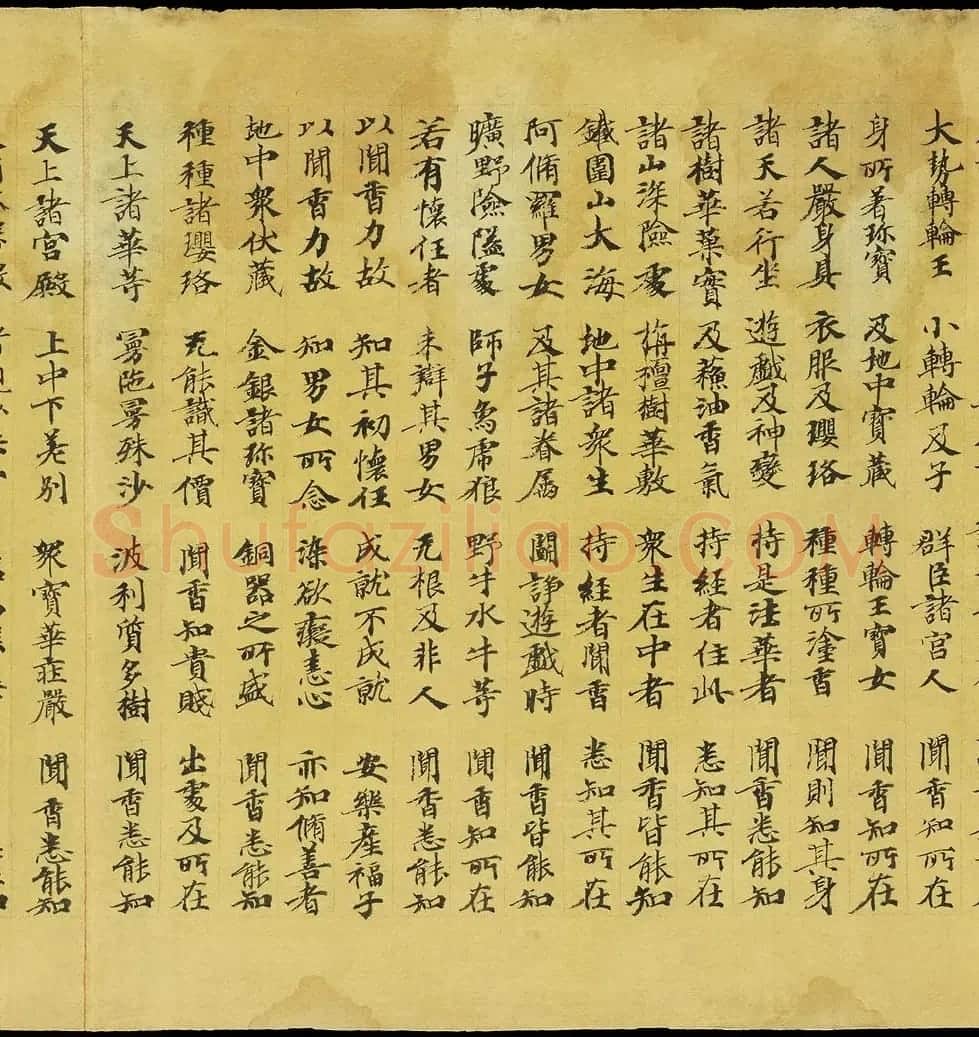 大勢轉輪王 小轉輪及子 群臣諸宮人 聞香知所在
身所著珎寶 及地中寶藏 轉輪王寶女 聞香知所在
諸人嚴身具 衣服及瓔珞 種種所塗香 聞則知其身
諸天若行坐 遊戲及神變 持是法華者 聞香悉能知
諸樹華菓實 及蘓油香氣 持經者住此 悉知其所在
諸山深險處 栴檀樹華敷 衆生在中者 聞香皆能知
鐵圍山大海 地中諸衆生 持經者聞香 悉知其所在
阿脩羅男女 及其諸眷属 鬪諍遊戲時 聞香皆能知
曠野險隘處 師子鳥虎狼 野牛水牛等 聞香知所在
若有懷任者 未辯其男女 无根及非人 聞香悉能知
以聞香力故 知其初懷任 成就不成就 安樂産福子
以聞香力故 知男女所念 染欲癡恚心 亦知脩善者
地中衆伏藏 金銀諸珎寶 銅器之所盛 聞香悉能知
種種諸瓔珞 无能識其價 聞香知貴賤 出處及所在
天上諸華等 曼陁曼殊沙 波利質多樹 聞香悉能知
天上諸宮殿 上中下差别 衆寶華莊嚴 聞香悉能知
Shufaziliao.COM